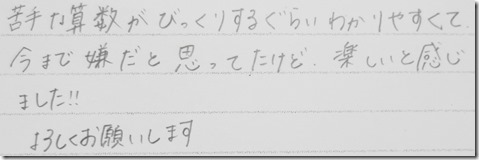 苦手な算数がびっくりするぐらいわかりやすくて
今まで嫌だと思ってたけど、楽しいと感じ
ました!!
よろしくお願いします